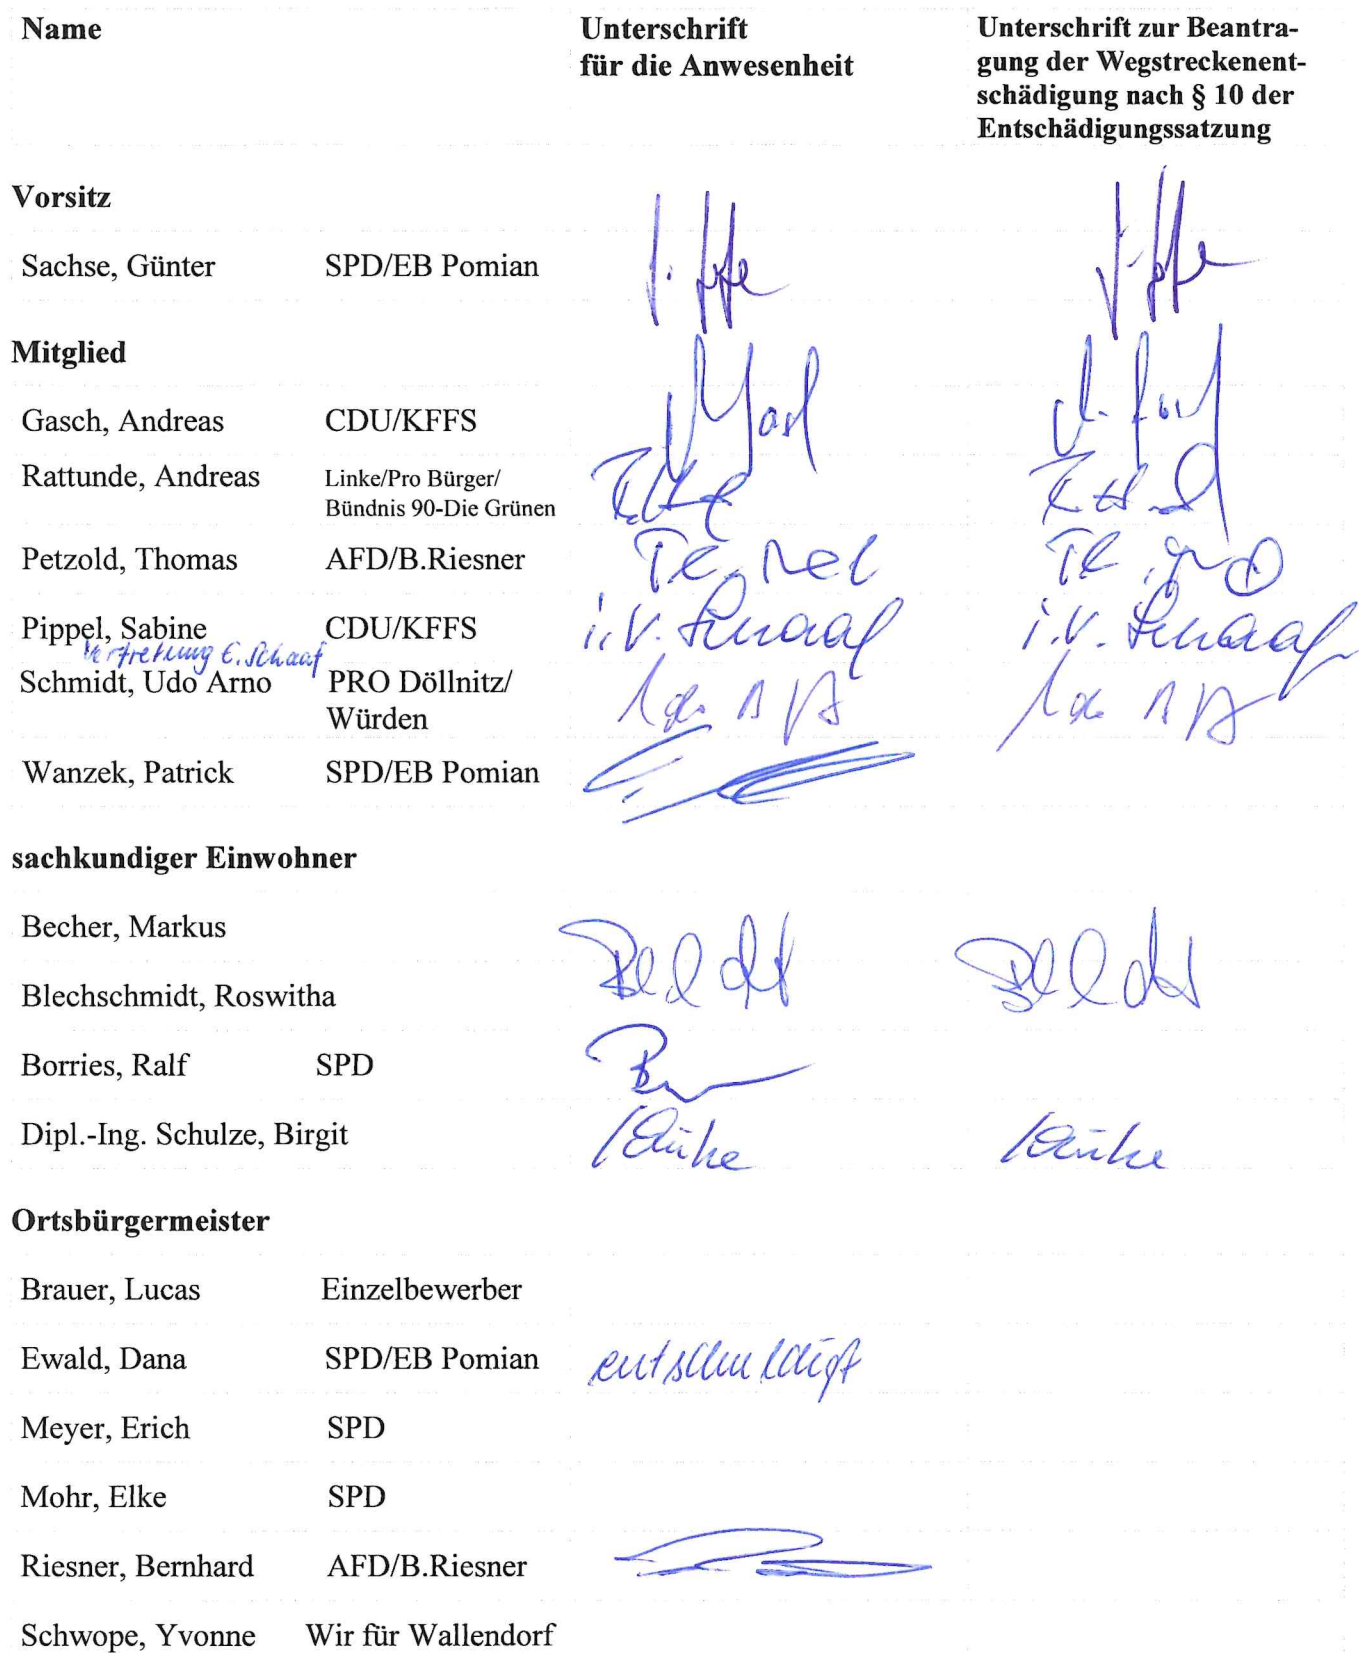 Name Unterschrift Unterschrift zur Beantra-
für die Anwesenheit gung der Wegstreckenent-
schädigung nach § 10 der
Entschädigungssatzung
Vorsitz
Sachse, Günter SPD/EB Pomian
Mitglied
Gasch, Andreas CDU/KFFS
Rattunde, Andreas Linke/Pro Bürger/
Bündnis 90-Die Grünen
Petzold, Thomas AFD/B.Riesner
Pippel, Sabine CDU/KFFS i.V. Schaaf i.V. Schaaf
Vertretung E. Schaaf
Schmidt, Udo Arno PRO Döllnitz/
Würden
Wanzek, Patrick SPD/EB Pomian
sachkundiger Einwohner
Becher, Markus
Blechschmidt, Roswitha
Borries, Ralf SPD
Dipl.-Ing. Schulze, Birgit
Ortsbürgermeister
Brauer, Lucas Einzelbewerber
Ewald, Dana SPD/EB Pomian entschuldigt
Meyer, Erich SPD
Mohr, Elke SPD
Riesner, Bernhard AFD/B.Riesner
Schwope, Yvonne Wir für Wallendorf